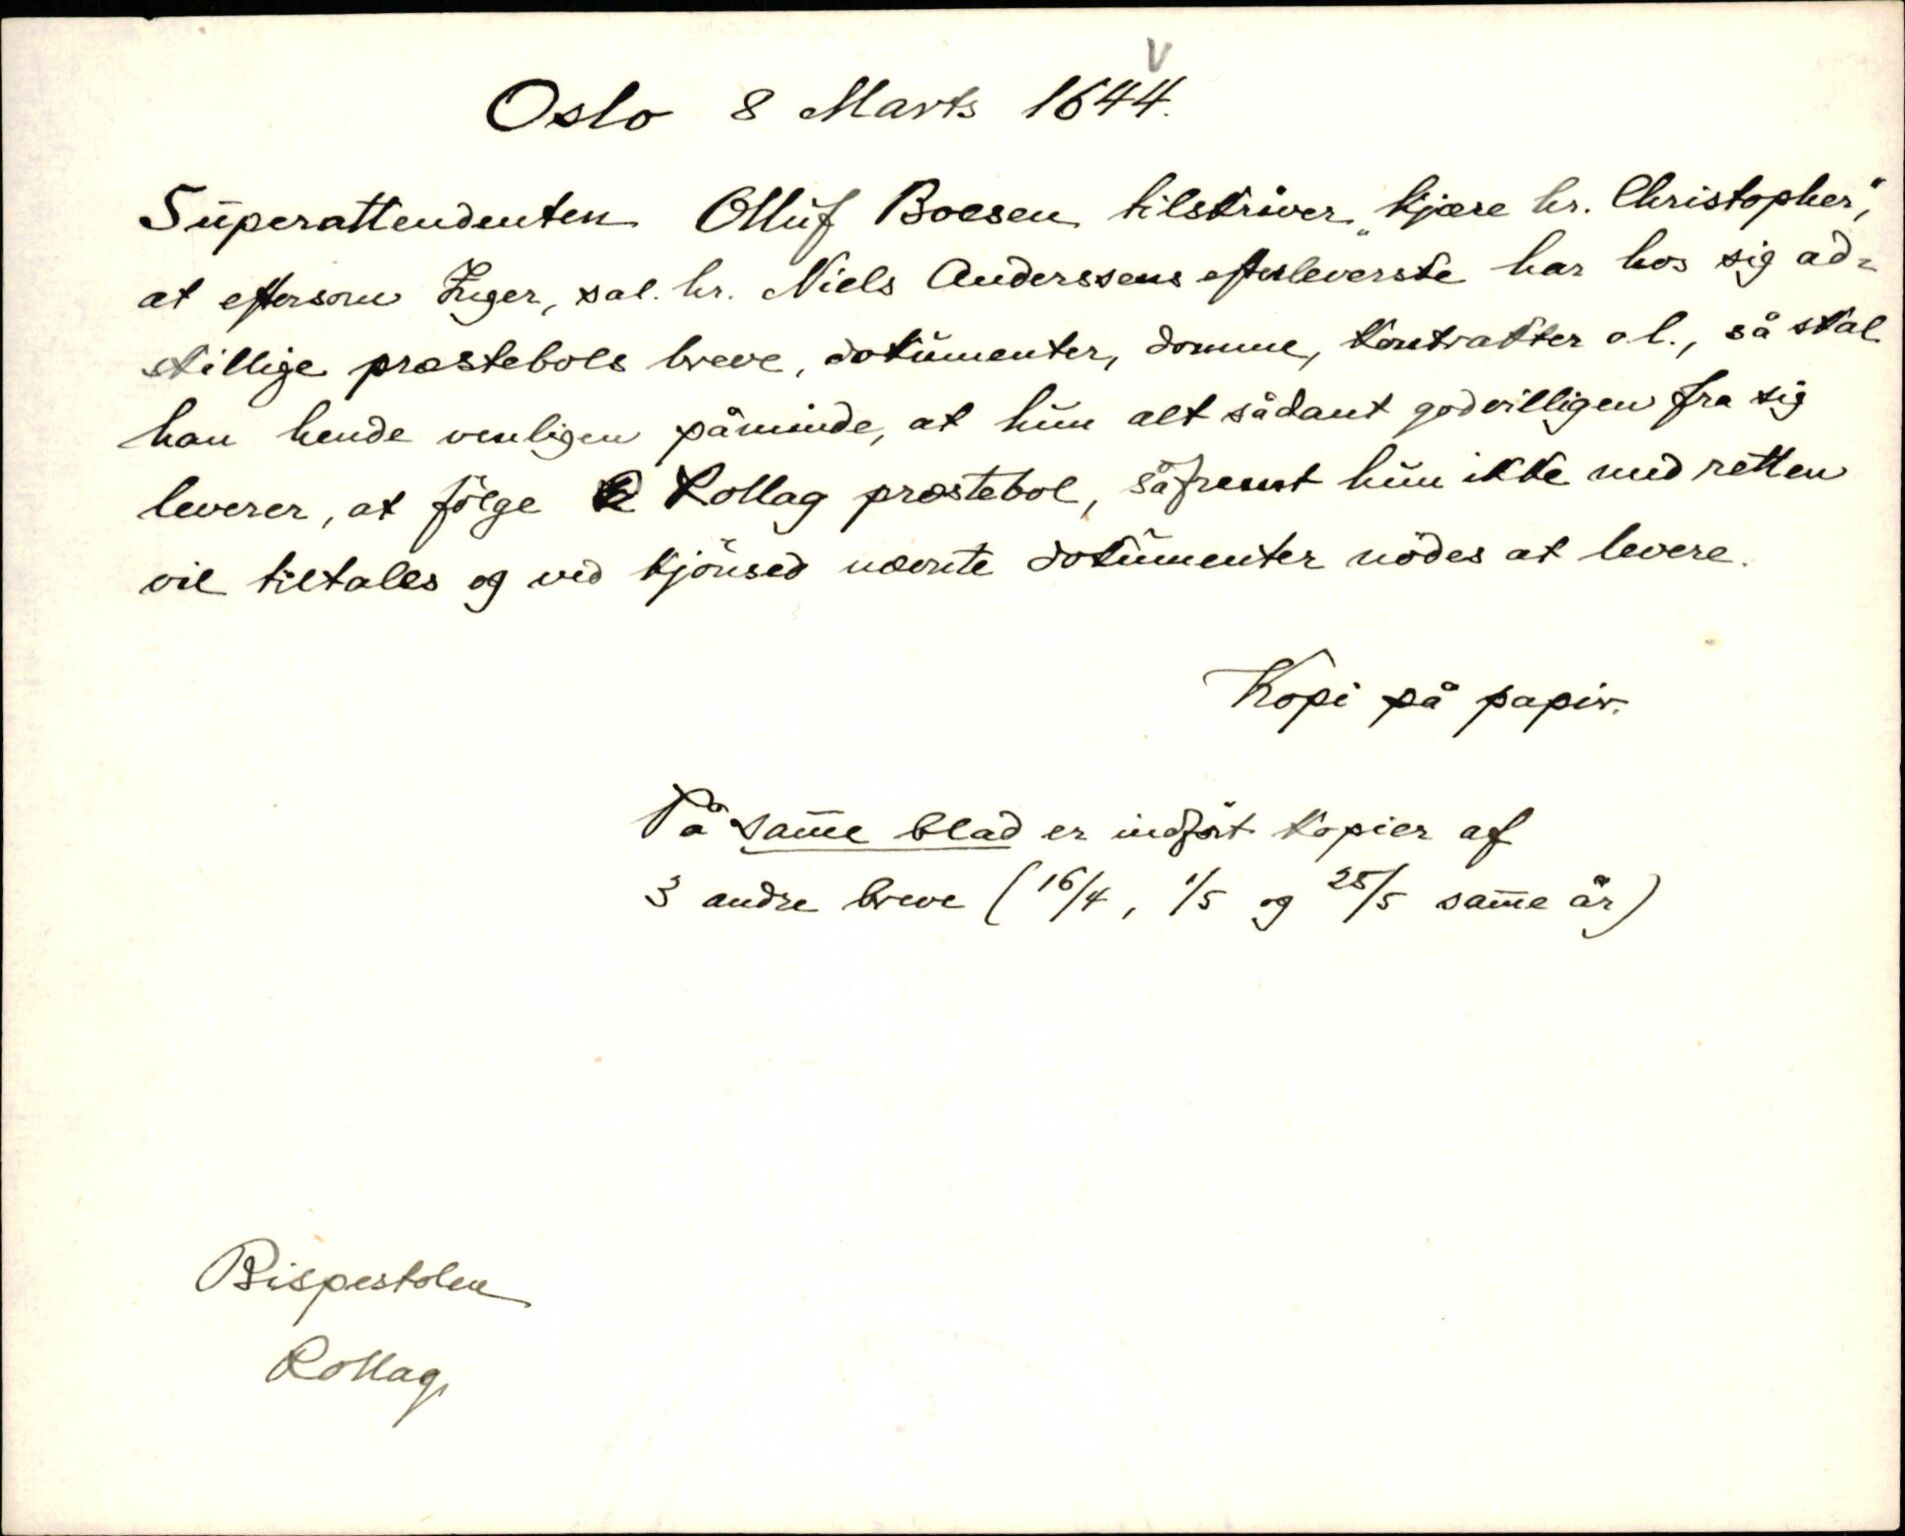 Oslo 8 Marts 1644.
Superattendenten Olluf Boesen tilskriver „kjære hr. Christopher“,
at eftersom Inger, sal. hr. Niels Anderssens efterleverske har hos sig ad=
skillige præstebols breve, dokumenter, domme, kontrakter o.l., så skal
han hende venligen påminde, at hun alt sådant godvilligen fra sig
leverer, at følge Rollag præstebol, såfremt hun ikke med retten
vil tiltales og ved kjønsed nævnte dokumenter nødes at levere.
Kopi på papir.
På sam̅e blad er indført kopier af
3 andre breve (16/4, 1/5 og 25/5 sam̅e år)
Bispestolen
Rollag